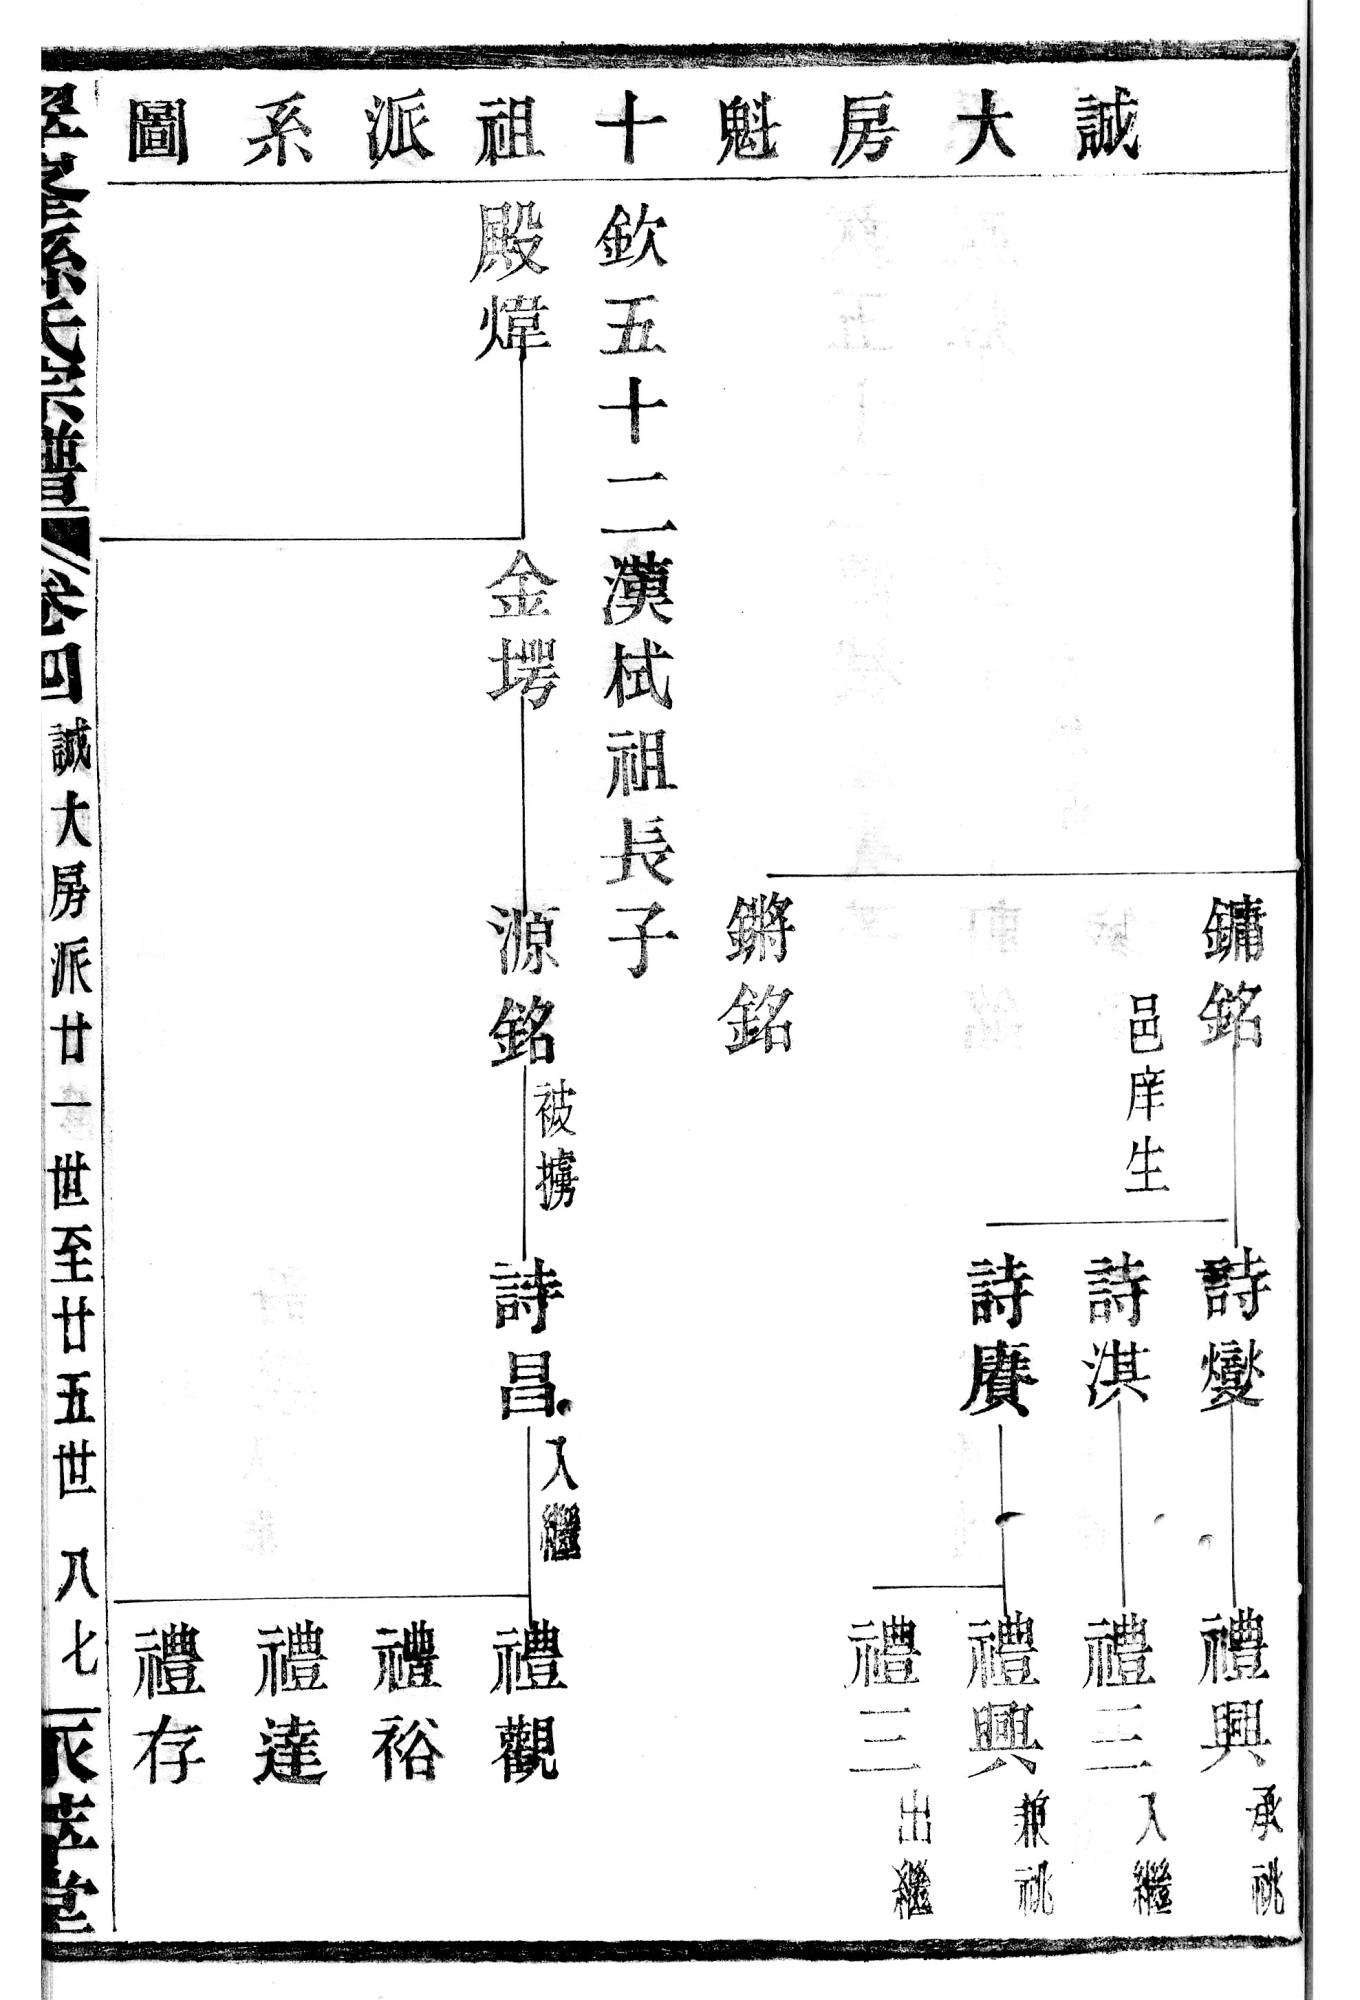 誠大房魁十祖派系圖
鏞銘
邑庠生
詩燮
禮興
承祧
詩淇
禮三
入繼
詩賡
禮興
兼祧
禮三
出繼
鏘銘
欽五十二漢栻祖長子
殿煒
金堮
源銘
被擄
詩昌
入繼
禮觀
禮裕
禮達
禮存
孫氏宗譜
卷四
誠大房派廿一世至廿五世
八七
堂